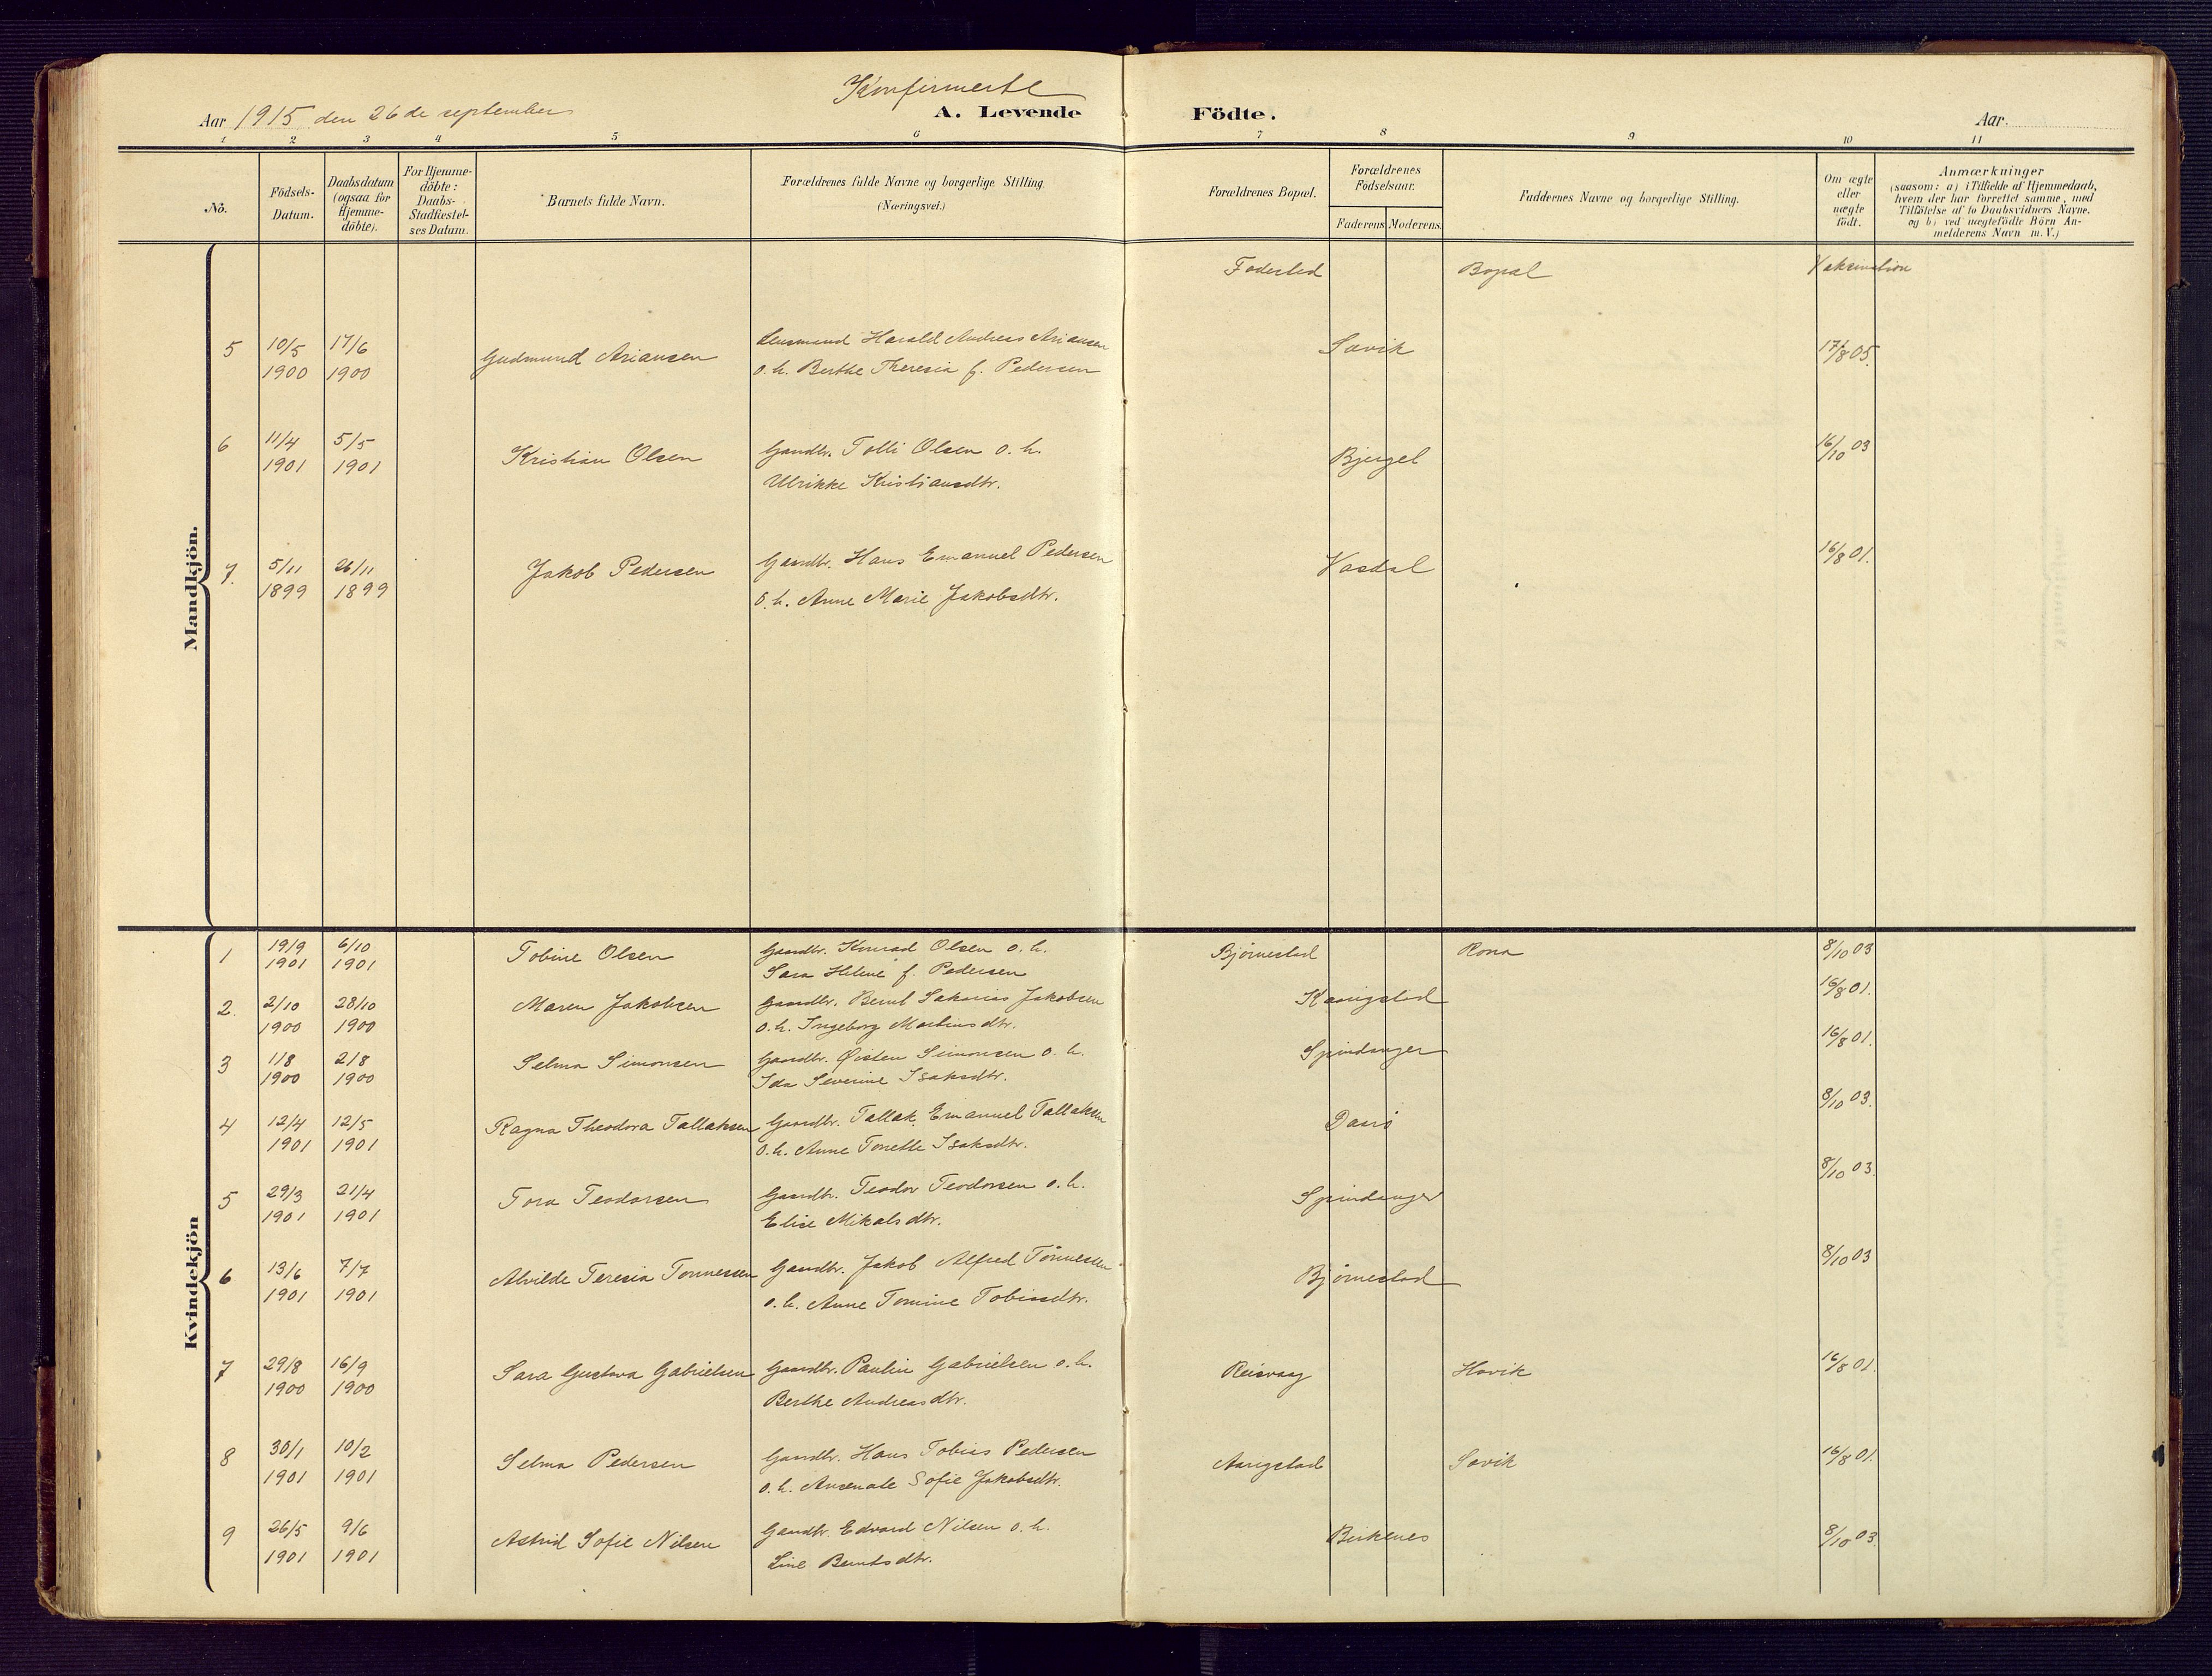 Konfirmerte
Aar 1915 den 26de september
A. Levende Födte.
Aar.
1 2 3 4 5 6 7 8 9 10 11
No.
Födsels-Datum.
Daabsdatum (ogsaa for Hjemme-döbte).
For Hjemme-döbte: Daabs-Stadfæstel-ses Datum.
Barnets fulde Navn.
Forældrenes fulde Navne og borgerlige Stilling
(Næringsvei.)
Forældrenes Bopæl.
Forældrenes Födselsaar.
Faderens Moderens.
Faddernes Navne og borgerlige Stilling.
Om ægte eller uægte födt.
Anmærkninger
(saasom: a) i Tilfælde af Hjemmedaab, hvem der har forrettet samme, med Tilföielse af to Daabsvidners Navne, og b) ved uægtefödte Börn An-melderens Navn m. V.)
Fødested Bopæl Vaksination
Mandkjön.
5 10/5 17/6 Gudmund Ariansen Lensmand Harald Andreas Ariansen Søvik 17/8 05.
1900 1900 o. h. Berthe Theresia f. Pedersen
6 11/4 5/5 Kristian Olsen Gaardbr. Tolli Olsen o. h. Bjergel 16/10 03
1901 1901 Ulrikke Kristiansdtr.
7. 5/11 26/11 Jakob Pedersen Gaardbr. Hans Emanuel Pedersen Vasdal 16/8 01.
1899 1899 o. h. Anne Marie Jakobsdtr.
Kvindekjön
1 19/9 6/10 Tobine Olsen Gaardbr. Konrad Olsen o. h. Bjørnestad Rona 8/10 03
1901 1901 Sara Helene f. Pedersen
2. 2/10 28/10 Maren Jakobsen Gaardbr. Bernt Sakarias Jakobsen Kaarigstad 16/8 01.
1900 1900 o. h. Ingeborg Martinsdtr.
3 1/8 2/8 Selma Simonsen Gaardbr. Øisten Simonsen o. h. Spindanger 16/8 01.
1900 1900 Ida Severine Isaksdtr.
4 12/4 12/5 Ragna Theodora Tallaksen Gaardbr. Tallak Emanuel Tallaksen 8/10 03.
1901 1901 o. h. Anne Tonette Isaksdtr.
5 29/3 21/4 Tora Teodorsen Gaardbr. Teodor Teodorsen o. h. Spindanger 8/10 03.
1901 1901 Elise Mikalsdtr.
6 13/6 7/7 Alvilde Teresia Tonnessen Gaardbr. Jakob Alfred Tönnessen Bjørnestad 8/10 03
1901 1901 o. h. Anne Tomine Tobiasdtr.
7 29/8 16/9 Sara Gustava Gabrielsen Gaardbr. Paulin Gabrielsen o. h. Reisvaag Høvik 16/8 01.
1900 1900 Berthe Andreasdtr.
8 30/1 10/2 Selma Pedersen Gaardbr. Hans Tobias Pedersen Aarigstad Søvik 16/8 01.
1901 1901 o. h. Ansenate Sofie Jakobsdtr.
9 26/5 9/6 Astrid Sofie Nilsen Gaardbr. Edvard Nilsen o. h. Birkenes 8/10 03.
1901 1901 Sine Berntsdtr.